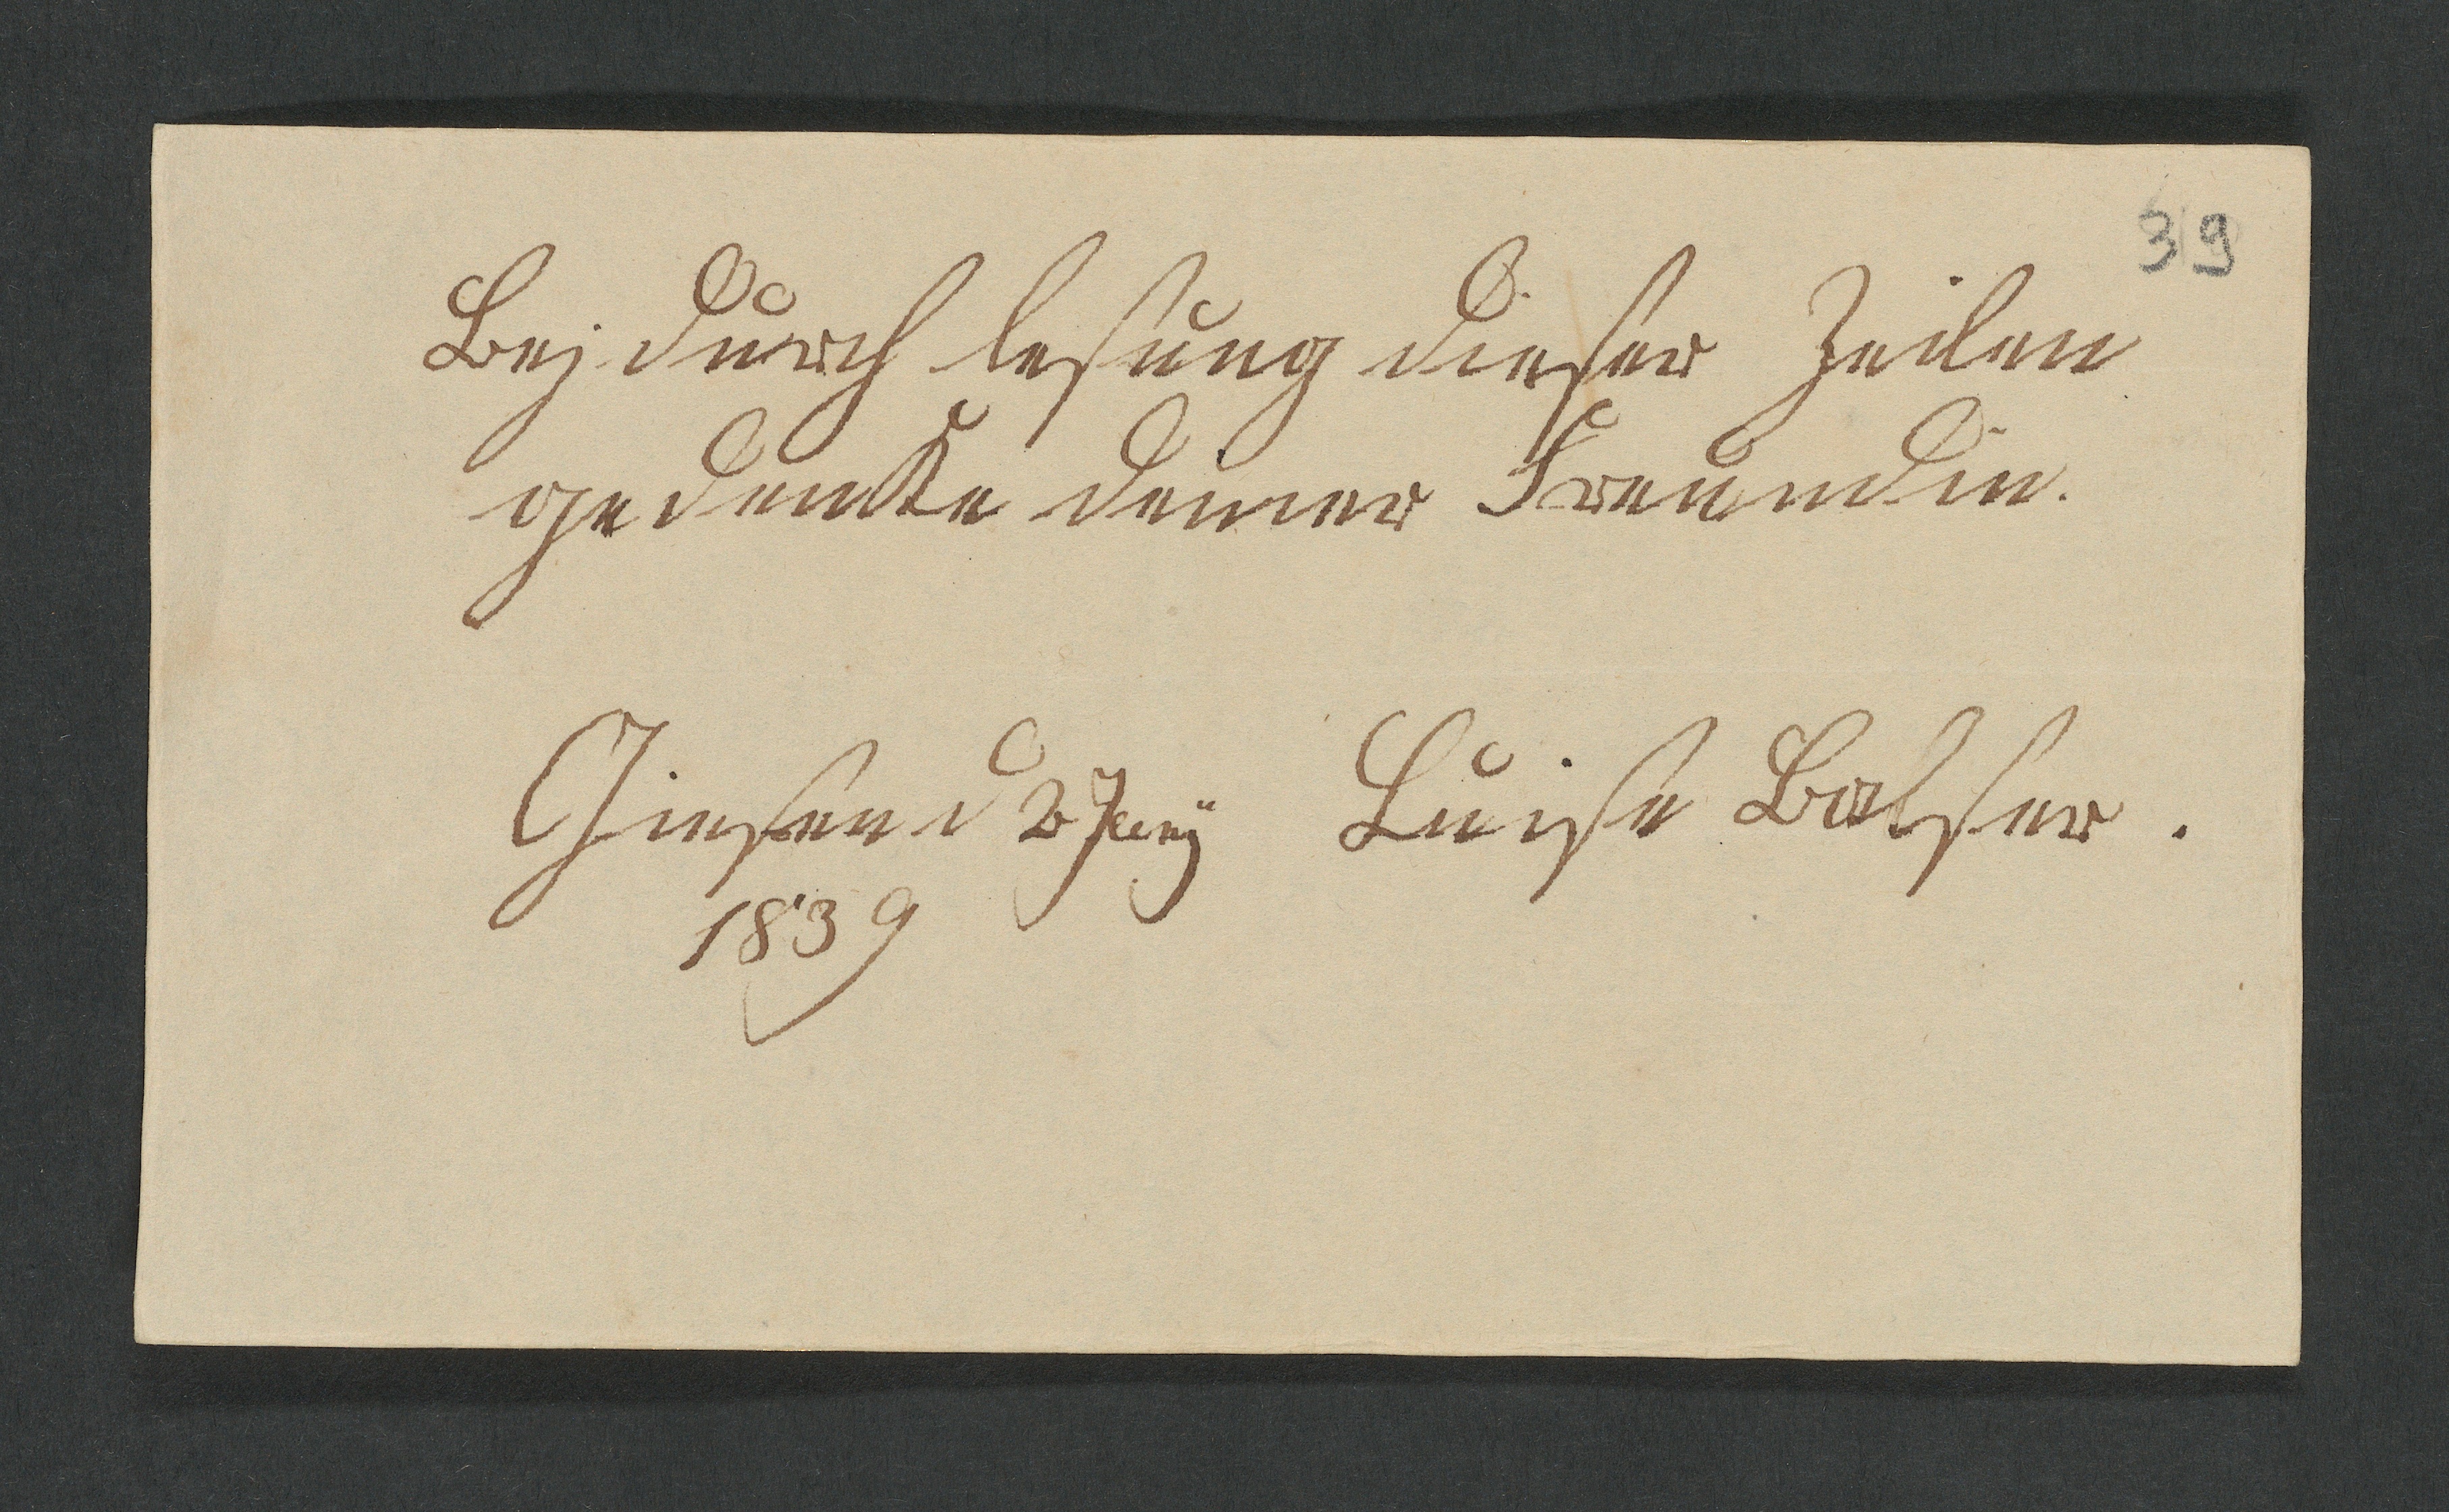 39
Bej durch lesung dieser Zeilen
gedenke deiner Freundin.
Giesen d 2 Junÿ Luise Balser.
1839